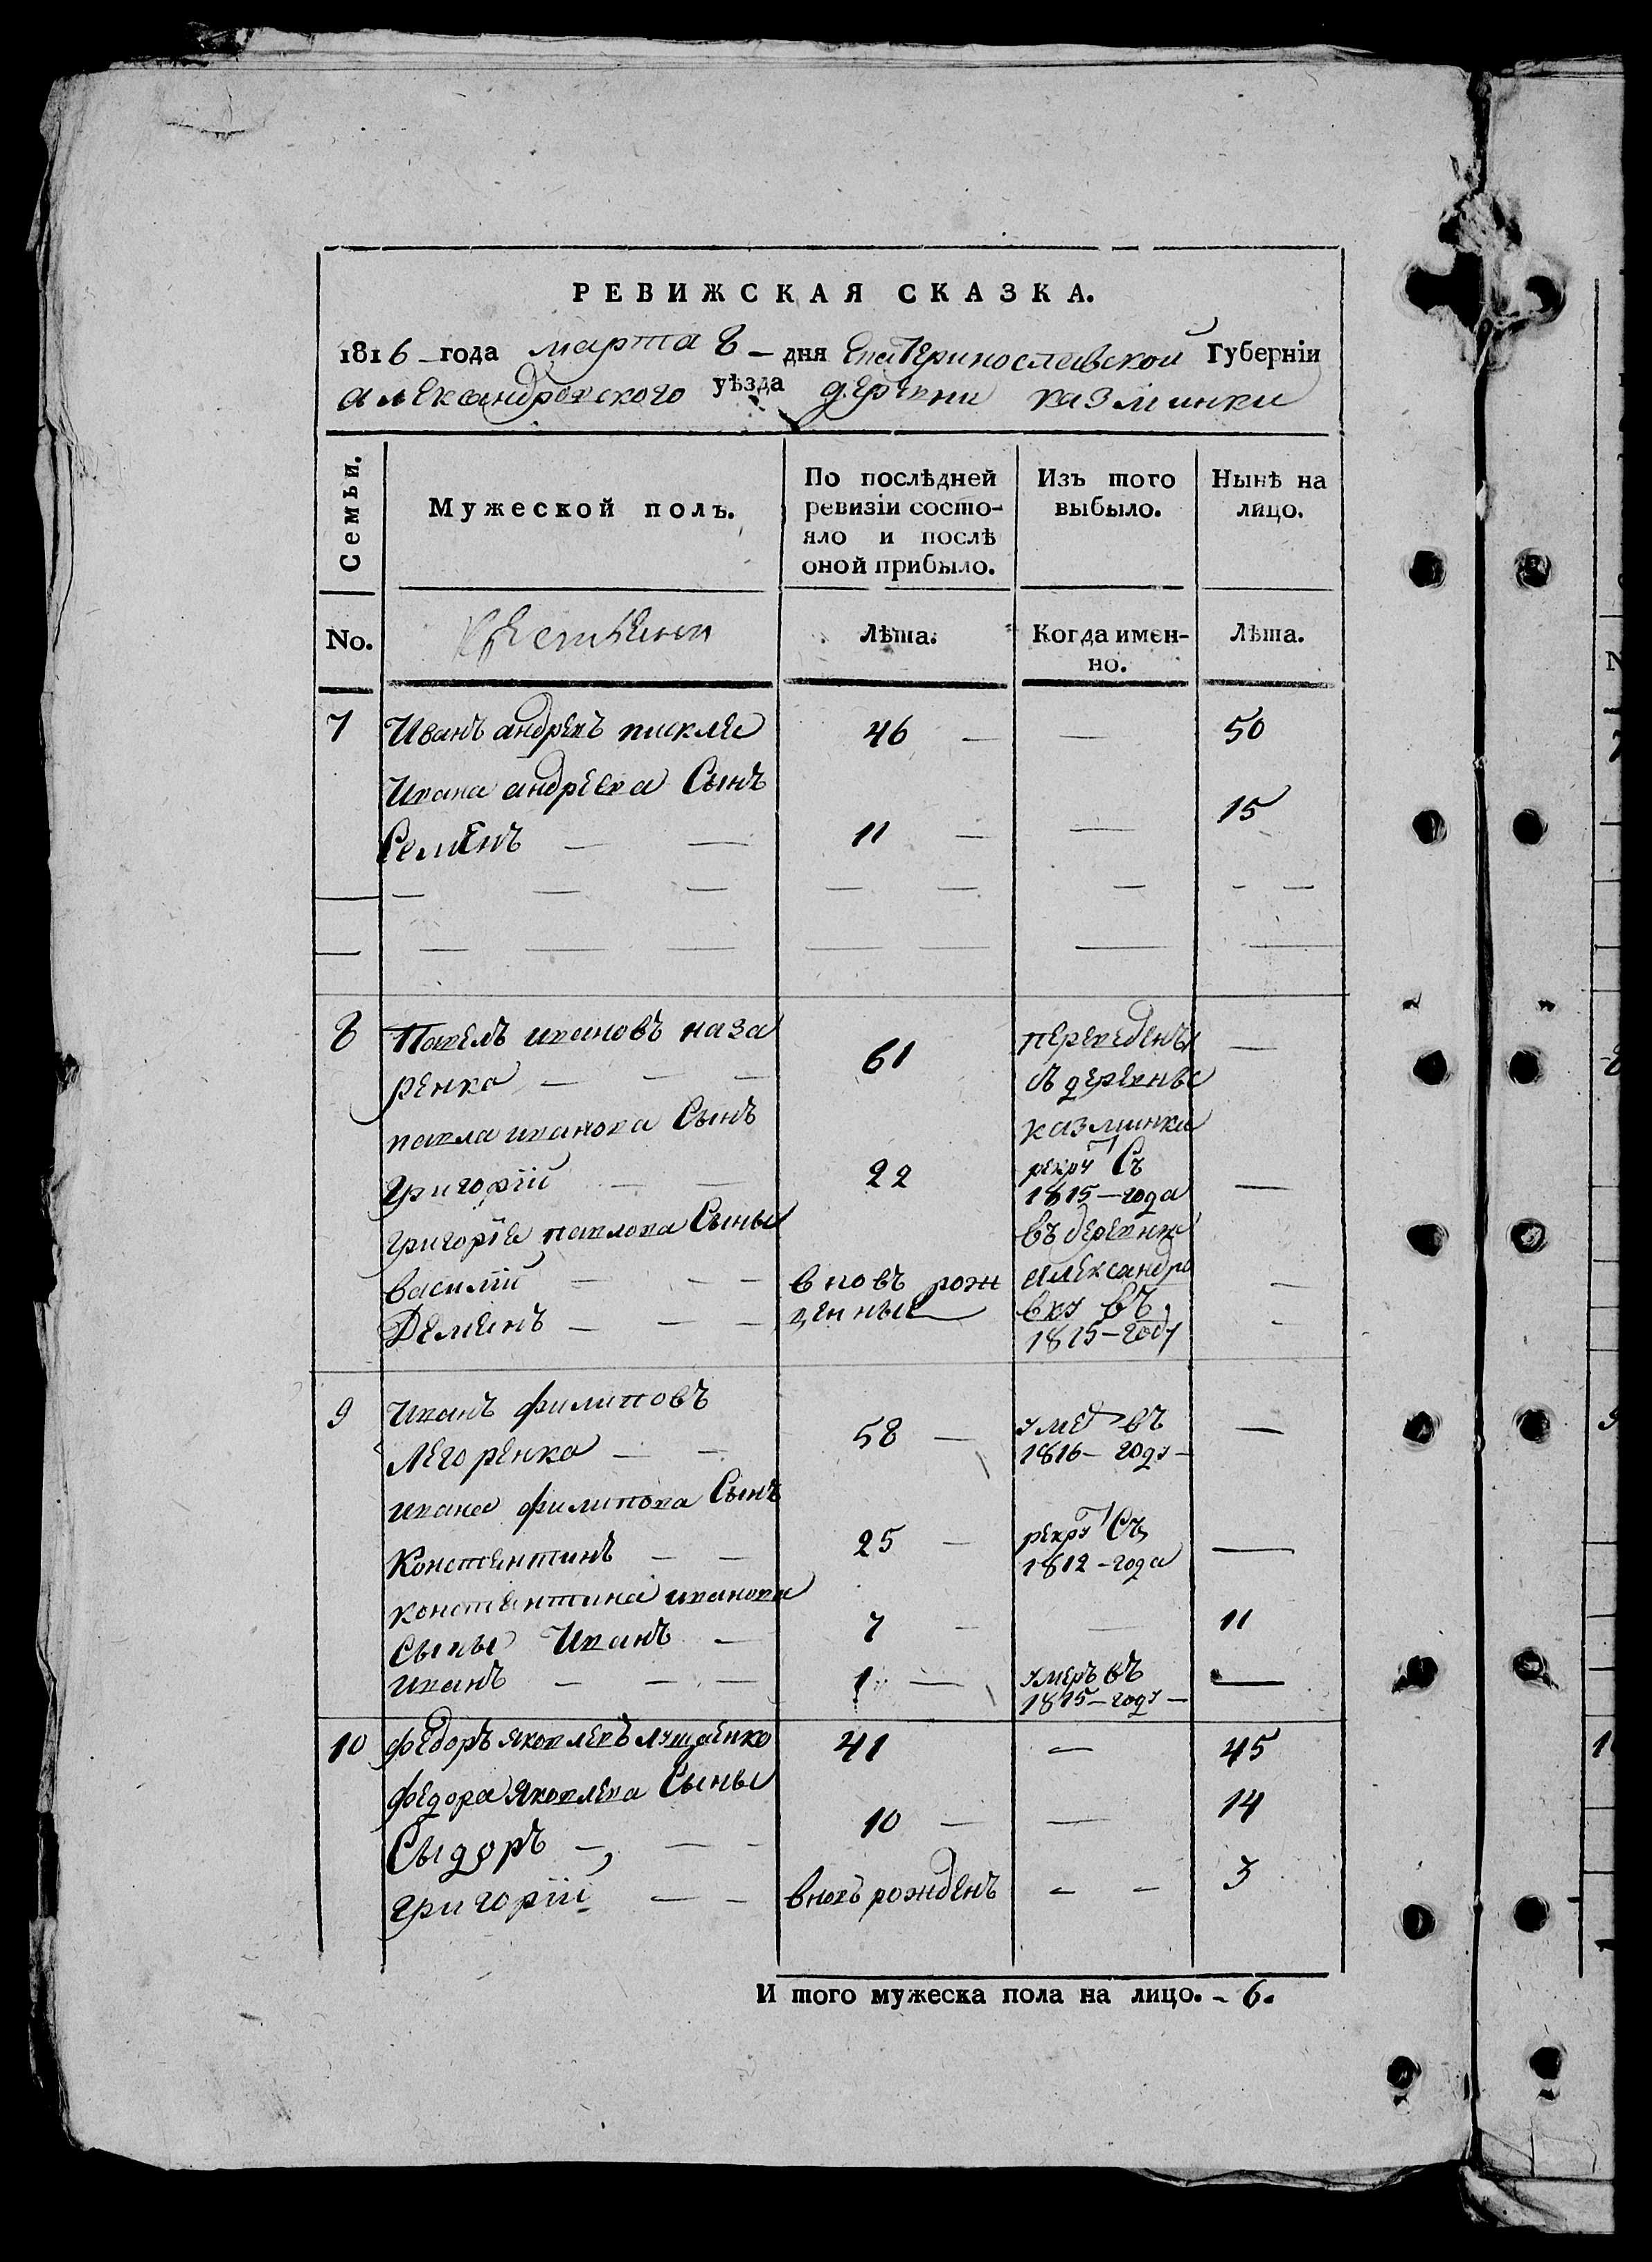 РЕВИЖСКАЯ СКАЗКА.
1816 года марта 8 – дня Екатеринославской Губерніи
александровского уѣзда деревни казминки
Семьи.
Мужеской полъ.
По послѣдней
ревизіи состо-
яло и послѣ
оной прибыло.
Изъ того
выбыло.
Нынѣ на
лицо.
No.
Крестьяни
Лѣта.
Когда имен-
но.
Лѣта.
7 Иванъ андревъ пискле 46 — — 50
Ивана андреева Сынъ
Семенъ — — 11 — — 15
8 Павелъ ивановъ наза 61 переведены —
ренко — — — съ деревне
павла иванова Сынъ казминки
григорій — — 22 рекру Съ
1815 – года —
григорie павлова Сыны въ деревню
василій — — — вновь рож александро —
Деменъ — — — денные вку въ —
1815 – году
9 Иванъ филиповъ
Легоренко — — 58 — умеръ въ —
1816 – году –
ивана филипова Сынъ
Константинъ — — 25 — рекру Съ —
1812 – года
константина иванова
сыны Иванъ — 7 — — 11
иванъ — — — 1 — умеръ въ —
1815 – году –
10 федоръ яковлевъ лущенко 41 — 45
федора яковлева Сыны
Сыдоръ — — — 10 — — 14
григорій — — вновъ рожденъ — — 3
И того мужеска пола на лицо. – 6.